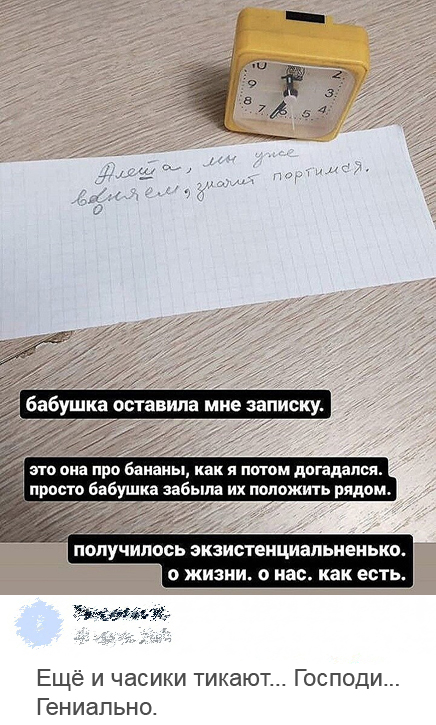 10
2
9
3
8
4
7
6
5
Алеша, мы уже
воняем, значит портимся.
бабушка оставила мне записку.
это она про бананы, как я потом догадался.
просто бабушка забыла их положить рядом.
получилось экзистенциальненько.
о жизни. о нас. как есть.
Ещё и часики тикают... Господи...
Гениально.